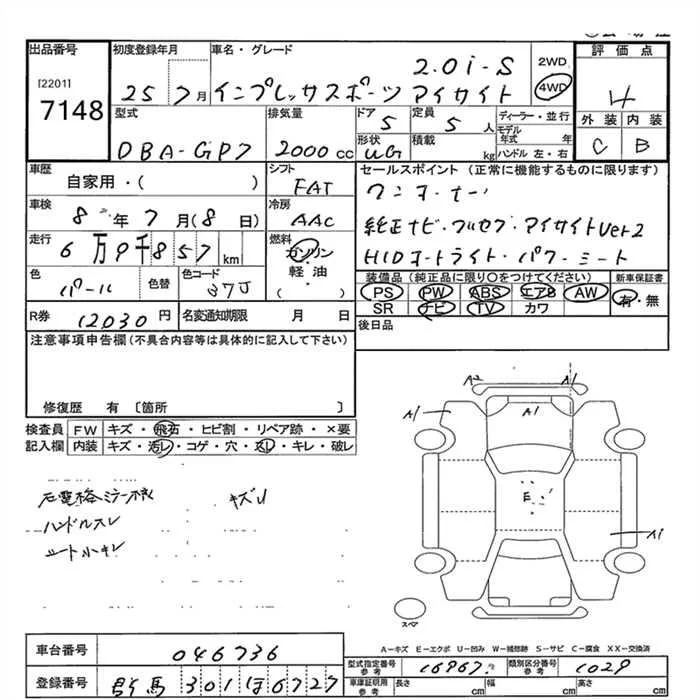 出品番号 初度登録年月 車名・グレード 評価点
[2201]
7148
25 7月 インプレッサスポーツ 2.0i-S アイサイト 2WD 4WD
4
外装 内装
C B
型式 排気量 ドア 定員 ディーラー・並行
DBA-GP7 2000cc 5 5人 モデル年式 年
形状 積載 kg ハンドル左・右
車歴 シフト セールスポイント(正常に機能するものに限ります)
自家用・( ) FAT ワンオーナー
車検 冷房
8年7月(8日) AAC 純正ナビ・フルセグ・アイサイトVer2
走行 燃料
6万9千857km ガソリン HIDオートライト・パワーシート
軽油・( )
色 色替 色コード 装備品(純正品に限り○をつけてください) 新車保証書
パール 37J PS PW ABS エアB AW 有・無
SR ナビ TV カワ
R券 12030円 名変通知期限 月 日 後日品
注意事項申告欄(不具合内容等は具体的に記入して下さい)
修復歴 有 〔箇所 〕
検査員 FW キズ・飛石・ヒビ割・リペア跡・×要
記入欄 内装 キズ・汚レ・コゲ・穴・スレ・キレ・破レ
A2 A1
A1 A1
ハンドルスレ
E
A1
スペア
A-キズ E-エクボ U-凹み W-補修跡 S-サビ C-腐食 XX-交換済
車台番号 046736
型式指定番号 参考 16967 類別区分番号 参考 1029
登録番号 群馬 301 ほ 6727
車庫証明用 参考 長さ cm 幅 cm 高さ cm